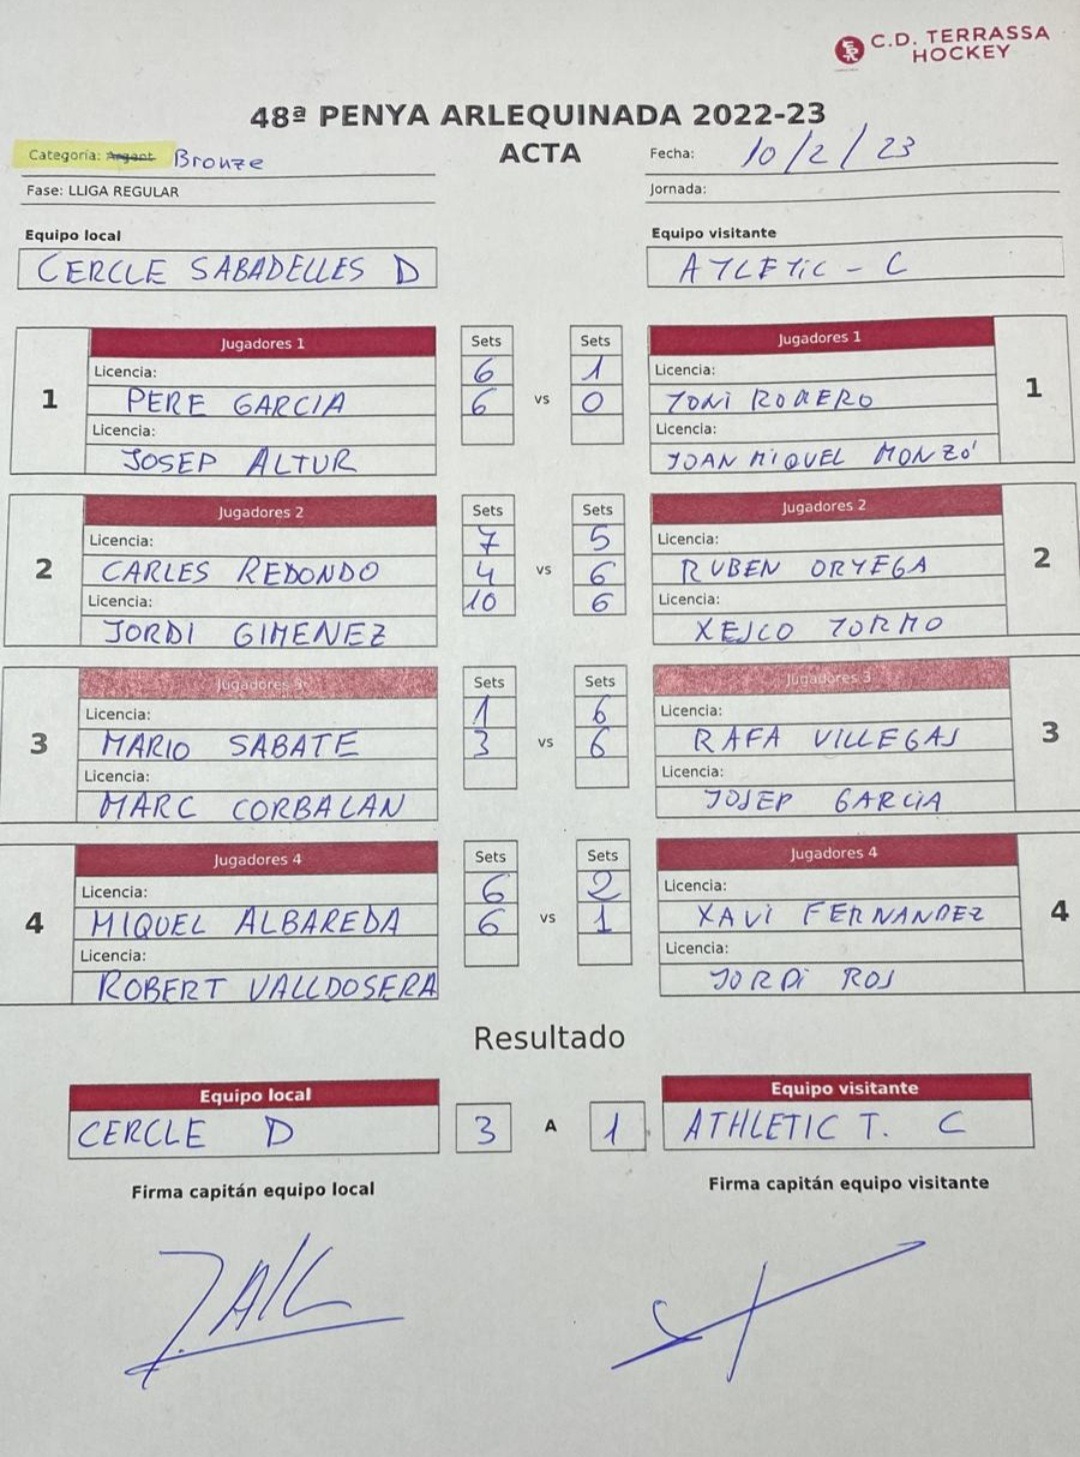 C.D. TERRASSA
HOCKEY
48ª PENYA ARLEQUINADA 2022-23
ACTA
Categoría: Argent Bronze
Fase: LLIGA REGULAR
Fecha: 10/2/23
Jornada:
Equipo local
CERCLE SABADELLES D
Equipo visitante
ATLETIC - C
1
Jugadores 1
Licencia:
PERE GARCIA
Licencia:
JOSEP ALTUR
Sets
6
6
vs
Sets
1
0
Jugadores 1
Licencia:
TONI ROMERO
Licencia:
JOAN MIQUEL MONZÓ
1
2
Jugadores 2
Licencia:
CARLES REDONDO
Licencia:
JORDI GIMENEZ
Sets
7
4
10
vs
Sets
5
6
6
Jugadores 2
Licencia:
RUBEN ORTEGA
Licencia:
XESCO TORMO
2
3
Jugadores 3
Licencia:
MARIO SABATE
Licencia:
MARC CORBALAN
Sets
1
3
vs
Sets
6
6
Jugadores 3
Licencia:
RAFA VILLEGAS
Licencia:
JOSEP GARCIA
3
4
Jugadores 4
Licencia:
MIQUEL ALBAREDA
Licencia:
ROBERT VALLDOSERA
Sets
6
6
vs
Sets
2
1
Jugadores 4
Licencia:
XAVI FERNANDEZ
Licencia:
JORDI ROS
4
Resultado
Equipo local
CERCLE D
3
A
1
Equipo visitante
ATHLETIC T. C
Firma capitán equipo local
Firma capitán equipo visitante